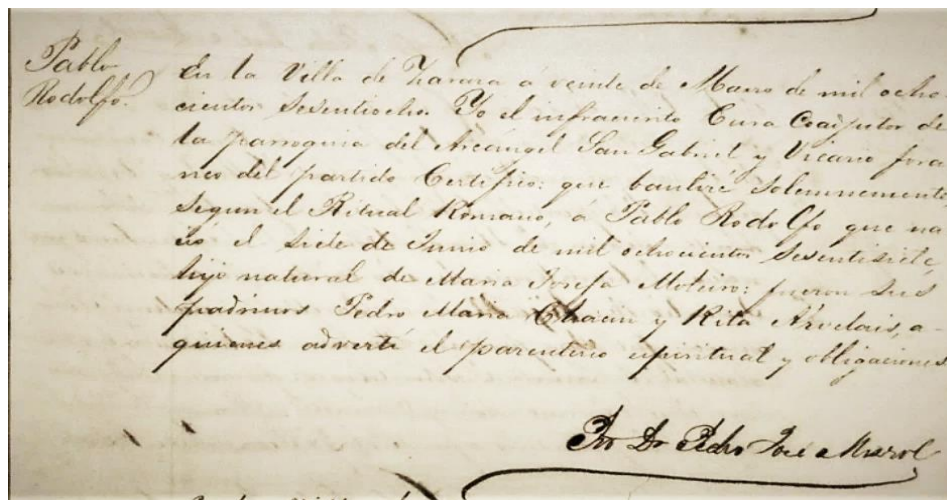 Pablo
Rodolfo.
En la Villa de Zaraza á veinte de Marzo de mil ocho
cientos sesentiocho. Yo el infrascrito Cura Coadjutor de
la parroquia del Arcángel San Gabriel y Vicario fora
neo del partido Certifico: que bauticé solemnemente
segun el Ritual Romano, á Pablo Rodolfo que na
ció el siete de Junio de mil ochocientos sesentisiete,
hijo natural de Maria Josefa : fueron sus
padrinos Pedro Maria y Rita Arvelais, a
quienes advertí el parentesco espiritual y obligaciones
Pbro Dr Pedro José